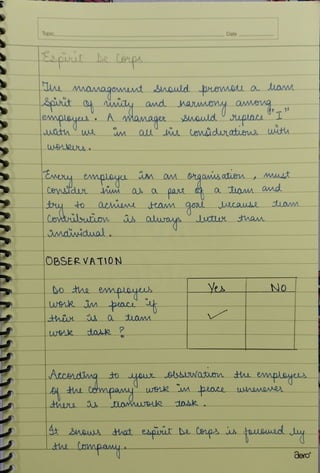 Topic
Date
Espirit De Corps
The management should promote a team
spirit of unity and harmony among
employees. A manager should replace "I"
with we in all his considerations with
workers.
Every employee in an organisation, must
consider him as a part of a team and
try to achieve team goal because team
contribution is always better than
individual.
OBSERVATION
Do the employees
work in peace if
their is a team
work task?
Yes NO
✓
According to your observation the employees
of the company work in peace whenever
there is teamwork task.
It shows that espirit De Corps is followed by
the Company.
aero